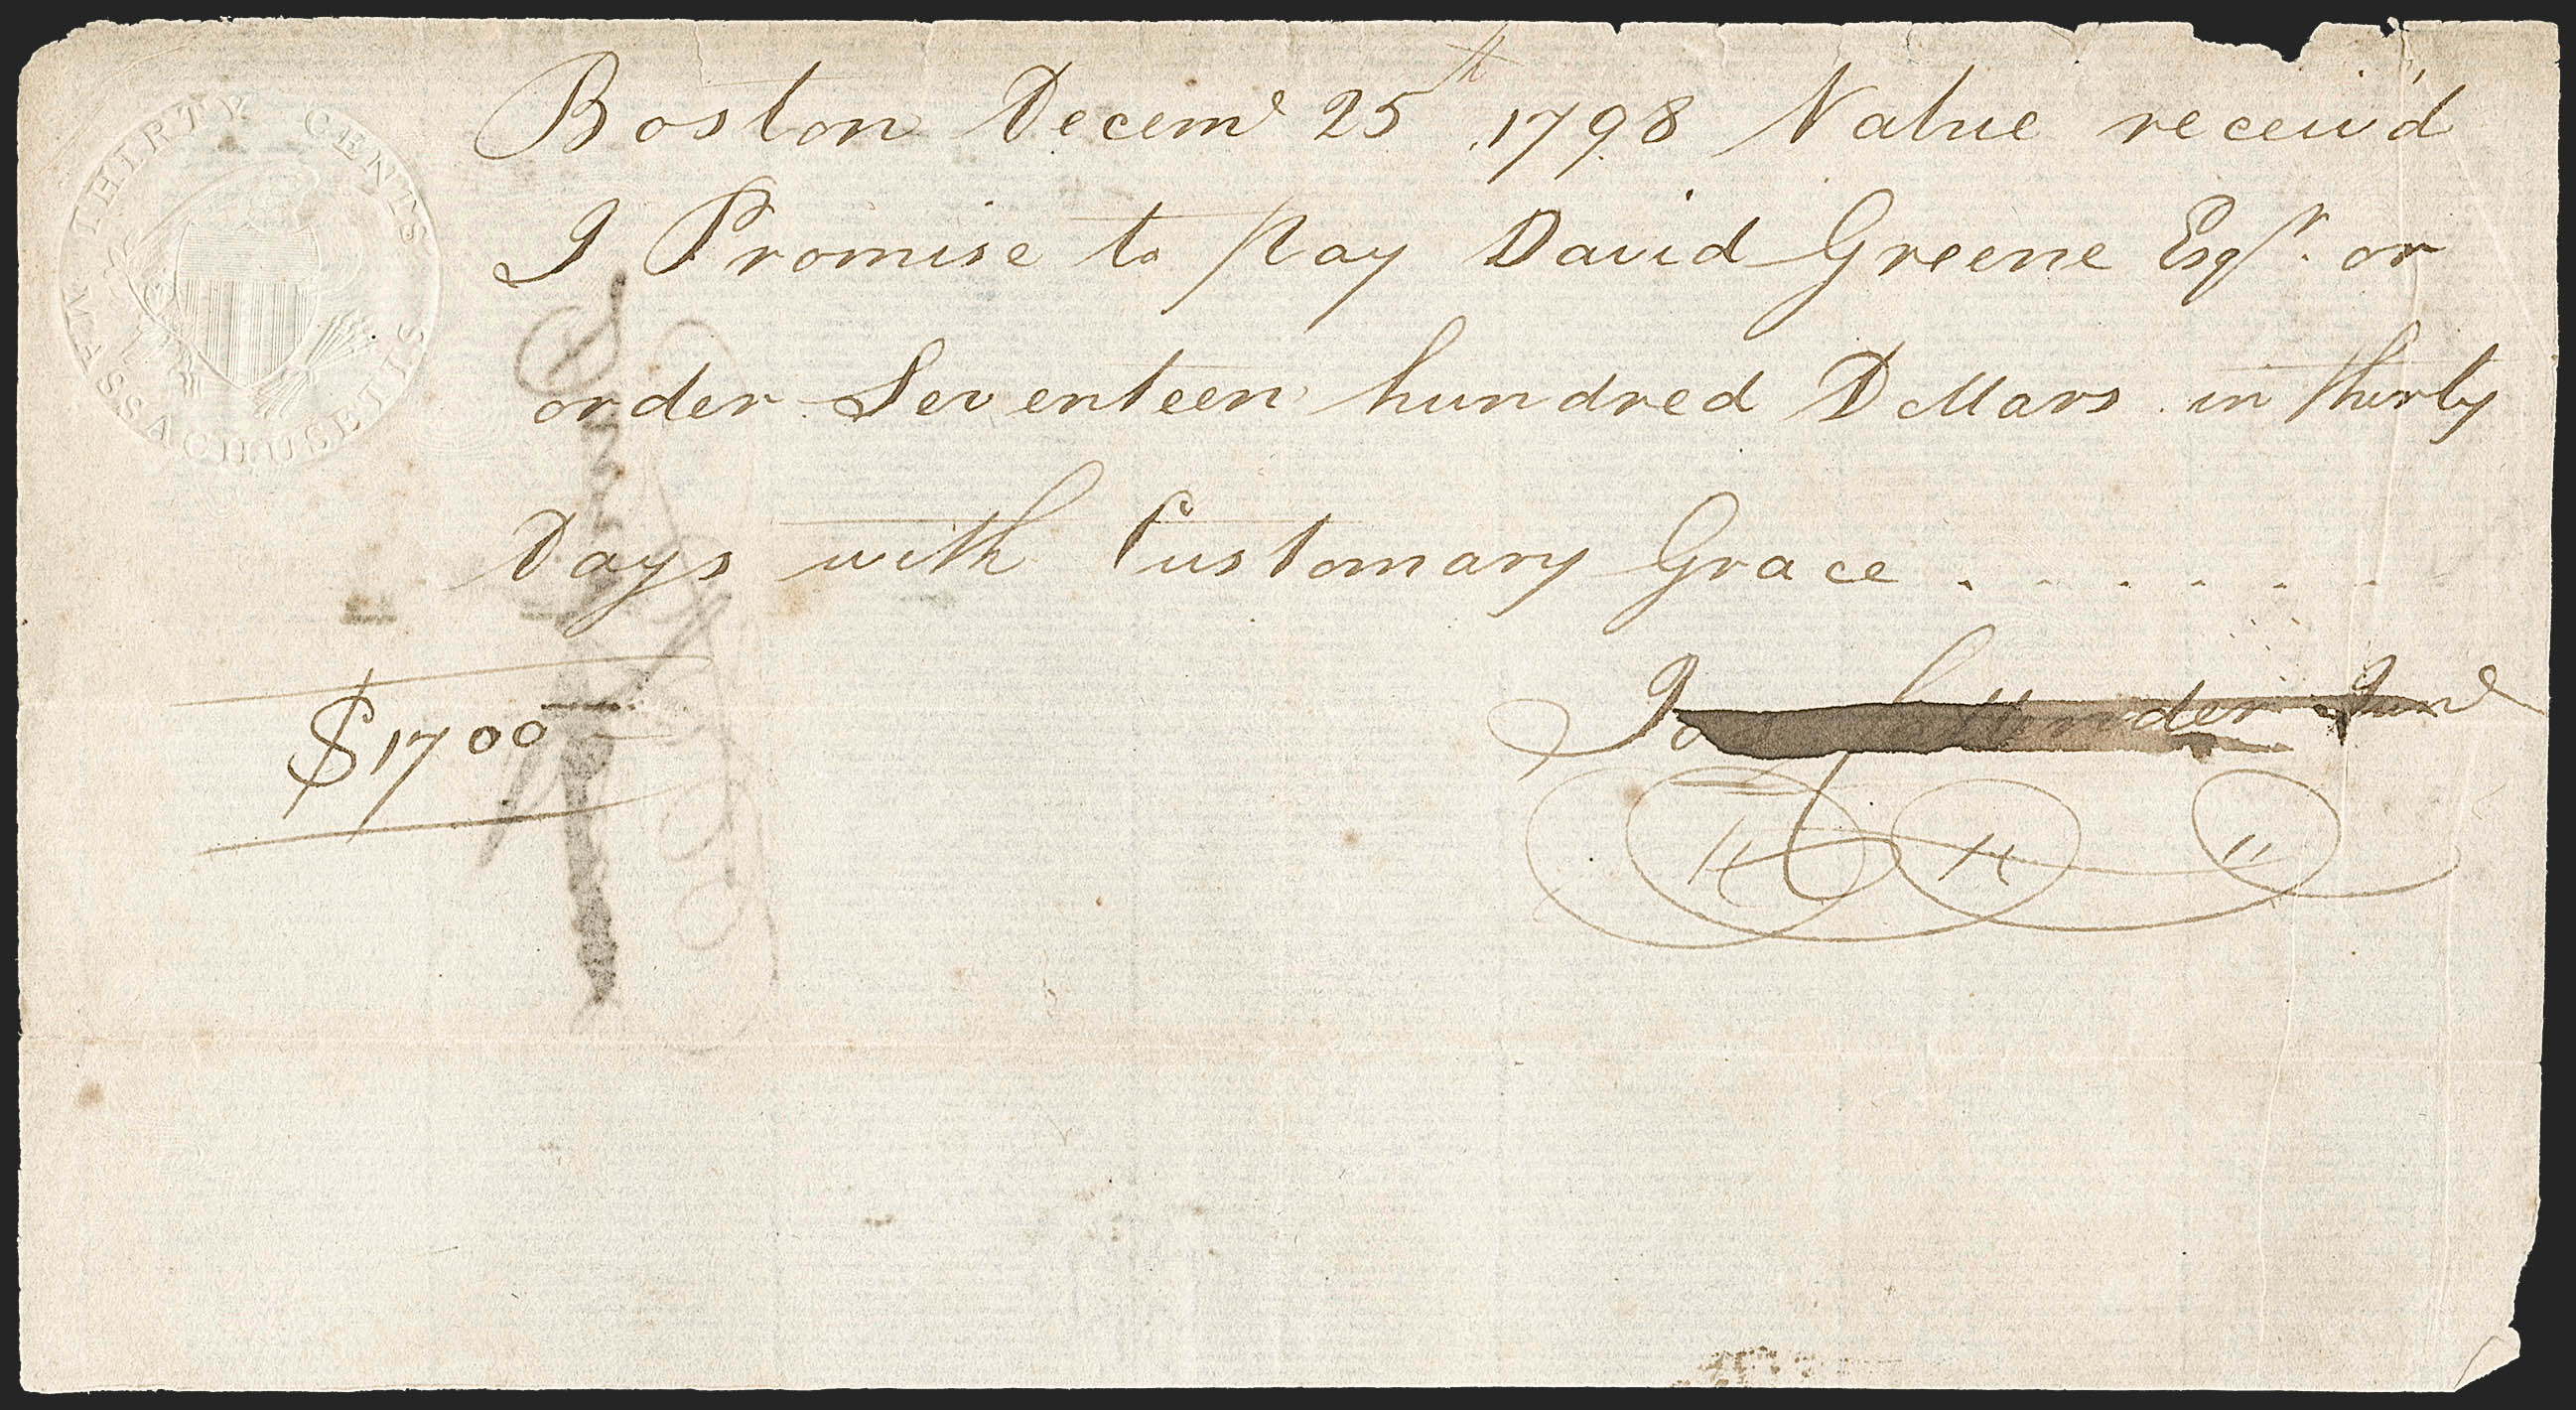 THIRTY CENTS
MASSACHUSETTS
Boston Decemr 25th 1798 Value receiv'd
I Promise to pay David Greene Esqr. or
order Seventeen hundred Dollars in thirty
Days with Customary Grace . . . . . .
$1700
Junr